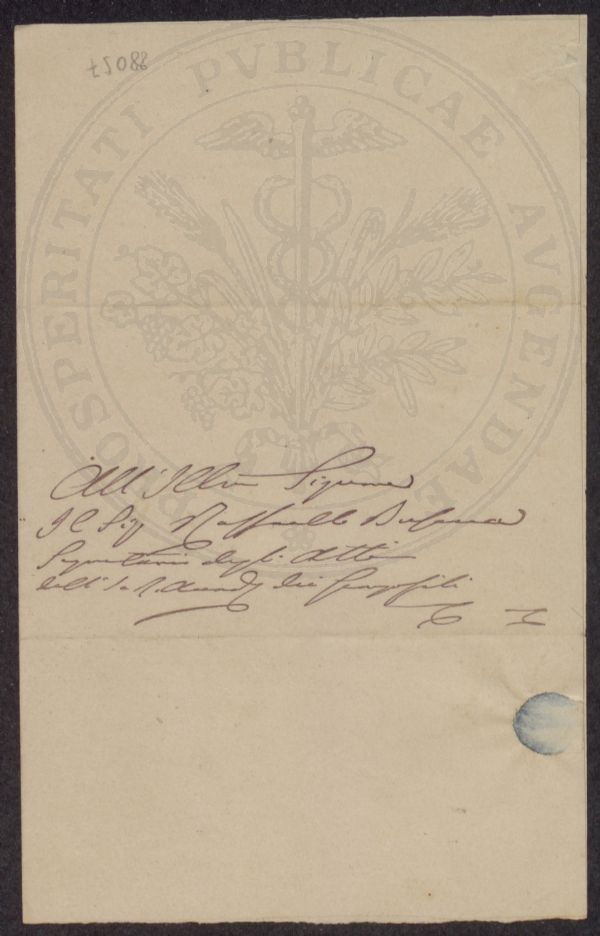 PROSPERITATI PVBLICAE AVGENDAE
All'Illmo Signore
Il Sig Raffaello
Segretario degli Atti
dell' I. R. Accad dei Georgofili